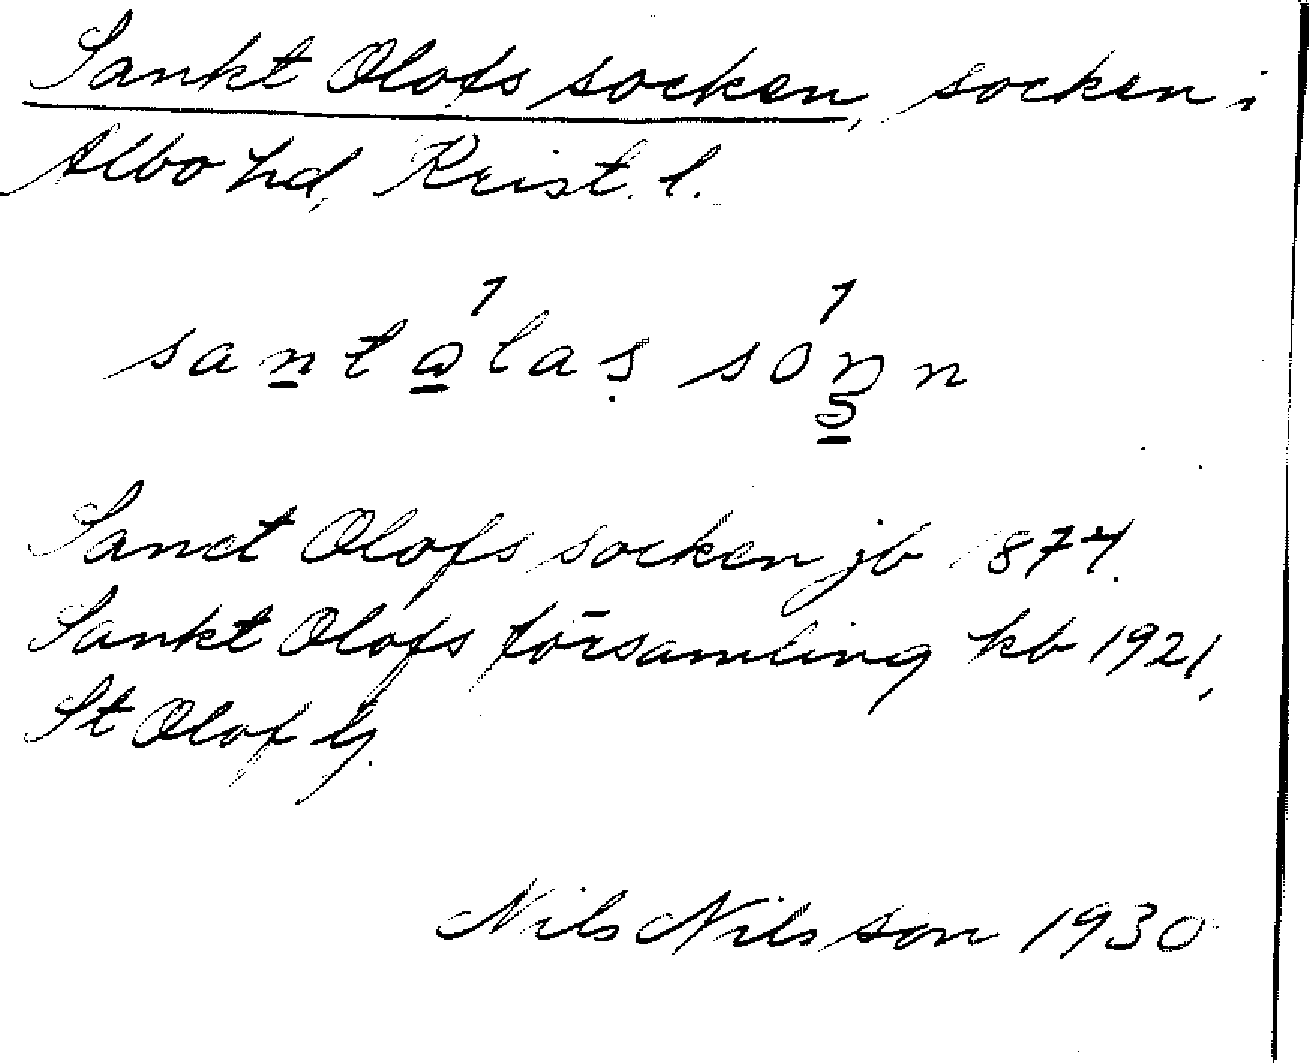 Sankt Olofs socken, socken i
Albo hd, Krist. l.
Sanct Olofs socken jb 1874.
Sankt Olofs församling kb 1921,
St Olof
Nils Nilsson 1930